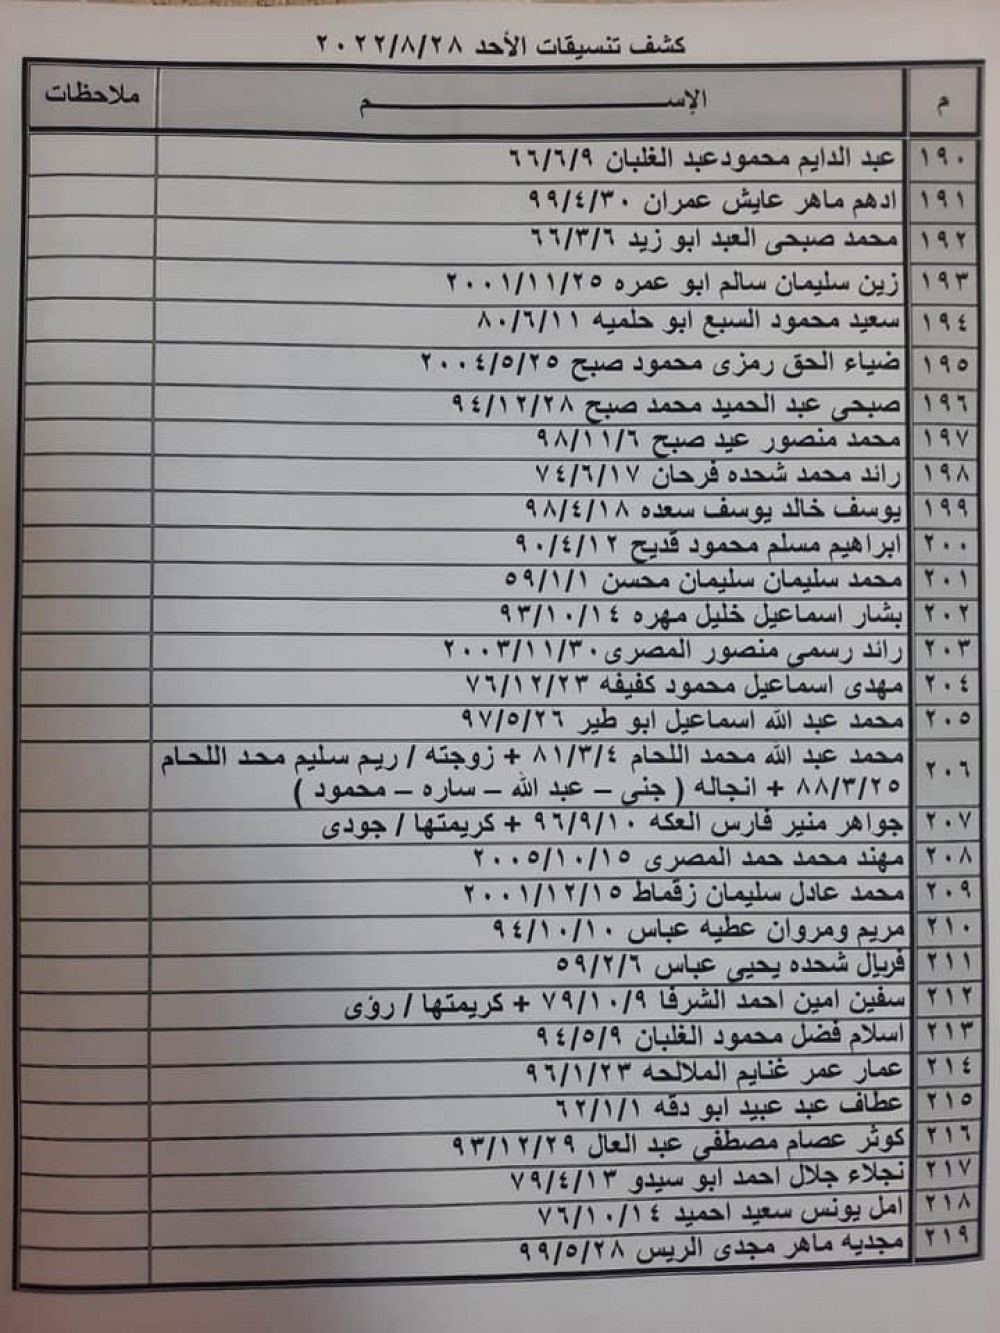 كشف تنسيقات الأحد ٢٠٢٢/٨/٢٨
م الإســـــــم ملاحظات
١٩٠ عبد الدايم محمودعبد الغلبان ٦٦/٦/٩
١٩١ ادهم ماهر عايش عمران ٩٩/٤/٣٠
١٩٢ محمد صبحى العبد ابو زيد ٦٦/٣/٦
١٩٣ زين سليمان سالم ابو عمره ٢٠٠١/١١/٢٥
١٩٤ سعيد محمود السبع ابو حلميه ٨٠/٦/١١
١٩٥ ضياء الحق رمزى محمود صبح ٢٠٠٤/٥/٢٥
١٩٦ صبحى عبد الحميد محمد صبح ٩٤/١٢/٢٨
١٩٧ محمد منصور عيد صبح ٩٨/١١/٦
١٩٨ رائد محمد شحده فرحان ٧٤/٦/١٧
١٩٩ يوسف خالد يوسف سعده ٩٨/٤/١٨
٢٠٠ ابراهيم مسلم محمود قديح ٩٠/٤/١٢
٢٠١ محمد سليمان سليمان محسن ٥٩/١/١
٢٠٢ بشار اسماعيل خليل مهره ٩٣/١٠/١٤
٢٠٣ رائد رسمى منصور المصرى ٢٠٠٣/١١/٣٠
٢٠٤ مهدى اسماعيل محمود كفيفه ٧٦/١٢/٢٣
٢٠٥ محمد عبد الله اسماعيل ابو طير ٩٧/٥/٢٦
٢٠٦ محمد عبد الله محمد اللحام ٨١/٣/٤ + زوجته / ريم سليم محد اللحام
٨٨/٣/٢٥ + انجاله ( جنى – عبد الله – ساره – محمود )
٢٠٧ جواهر منير فارس العكه ٩٦/٩/١٠ + كريمتها / جودى
٢٠٨ مهند محمد حمد المصرى ٢٠٠٥/١٠/١٥
٢٠٩ محمد عادل سليمان زقماط ٢٠٠١/١٢/١٥
٢١٠ مريم ومروان عطيه عباس ٩٤/١٠/١٠
٢١١ فريال شحده يحيى عباس ٥٩/٢/٦
٢١٢ سفين امين احمد الشرفا ٧٩/١٠/٩ + كريمتها / رؤى
٢١٣ اسلام فضل محمود الغلبان ٩٤/٥/٩
٢١٤ عمار عمر غنايم الملالحه ٩٦/١/٢٣
٢١٥ عطاف عبد عبيد ابو دقه ٦٢/١/١
٢١٦ كوثر عصام مصطفى عبد العال ٩٣/١٢/٢٩
٢١٧ نجلاء جلال احمد ابو سيدو ٧٩/٤/١٣
٢١٨ امل يونس سعيد احميد ٧٦/١٠/١٤
٢١٩ مجديه ماهر مجدى الريس ٩٩/٥/٢٨